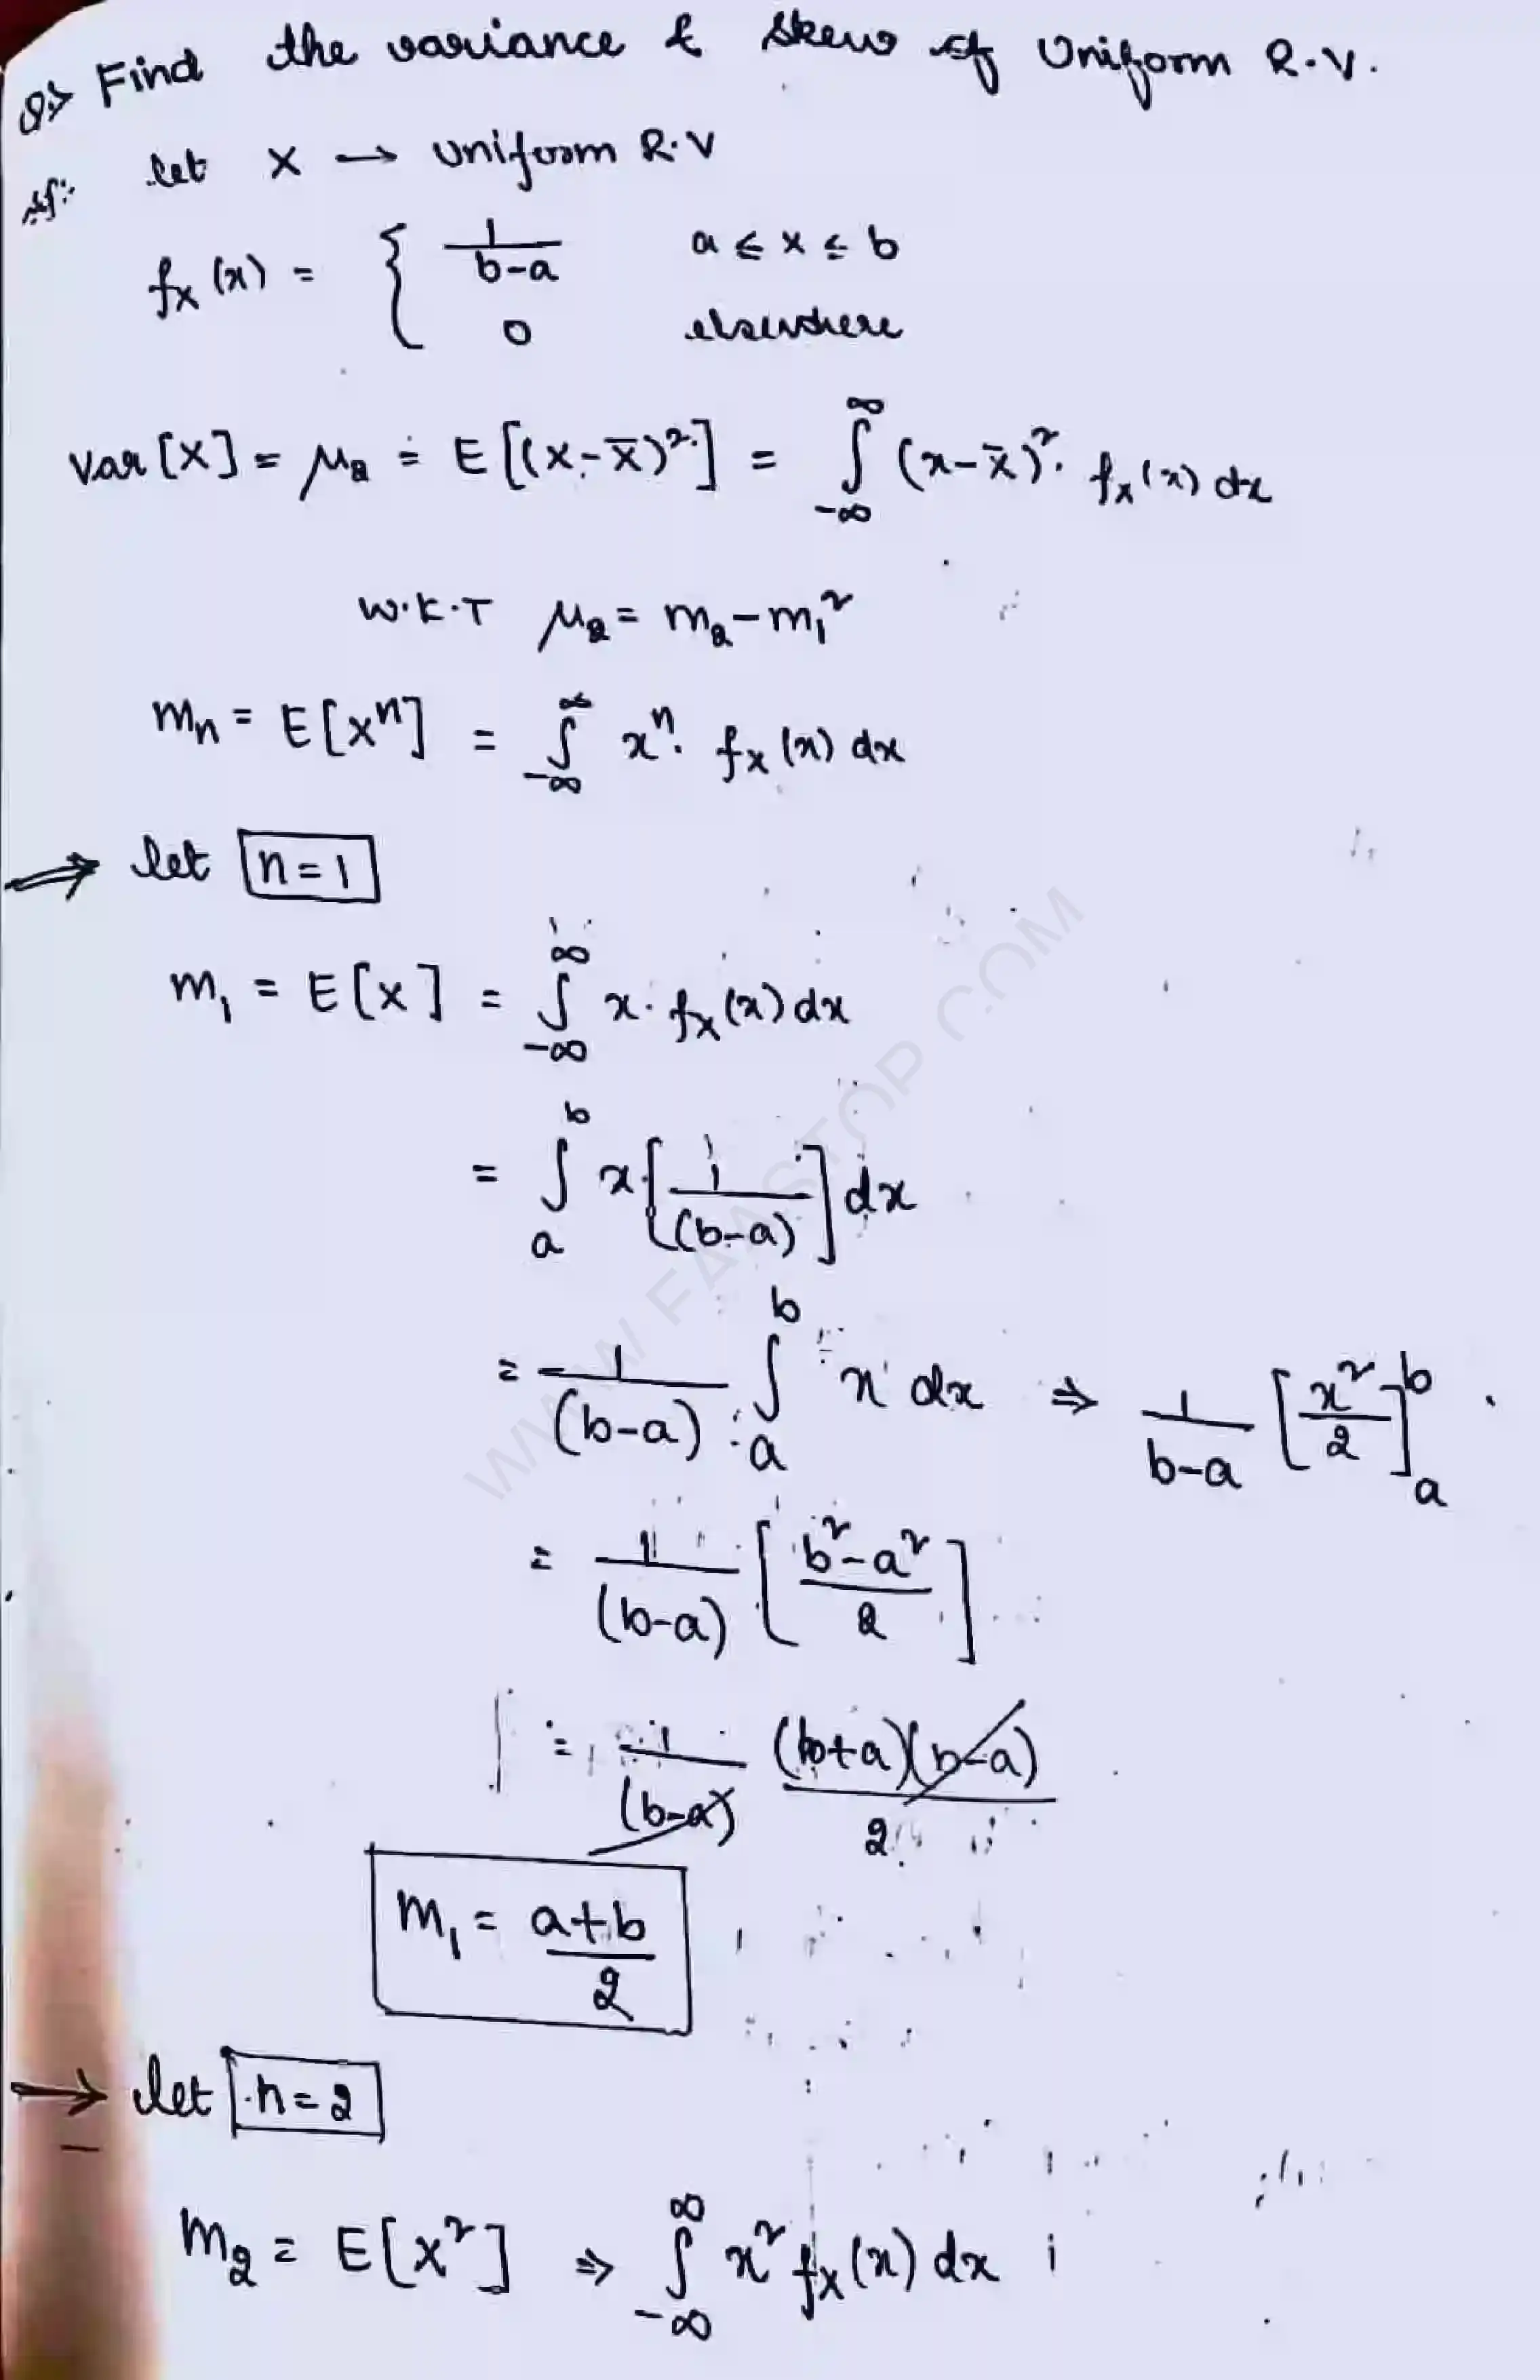 Q.> Find the variance & skew of Uniform R.V.
sol: let X → uniform R.V
fX(x) = { 1/(b-a) a ≤ x ≤ b
0 elsewhere
Var[X] = μ2 = E[(X-X̄)²] = ∫_{-∞}^{∞} (x-x̄)². fX(x) dx
W.K.T μ2 = m2 - m1²
mn = E[Xⁿ] = ∫_{-∞}^{∞} xⁿ. fX(x) dx
⇒ let n=1
m1 = E[X] = ∫_{-∞}^{∞} x. fX(x) dx
= ∫_a^b x[1/(b-a)] dx
= 1/(b-a) ∫_a^b x dx ⇒ 1/(b-a) [x²/2]_a^b
= 1/(b-a) [(b²-a²)/2]
= 1/(b-a) (b+a)(b-a)/2
m1 = (a+b)/2
⇒ let n=2
m2 = E[X²] ⇒ ∫_{-∞}^{∞} x² fX(x) dx
WWW.FAASTOP.COM